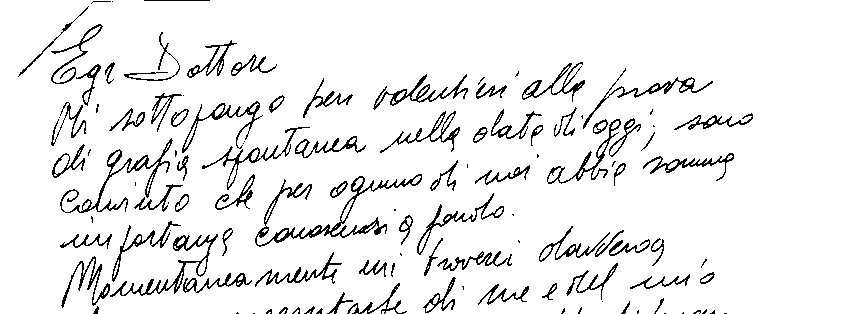 Egr Dottore
Mi sottopongo ben volentieri alla prova
di grafia spontanea nella data di oggi, sono
convinto che per ognuno di noi abbia somma
importanza conoscersi a fondo.
Momentaneamente mi troverei davvero
di me e del mio